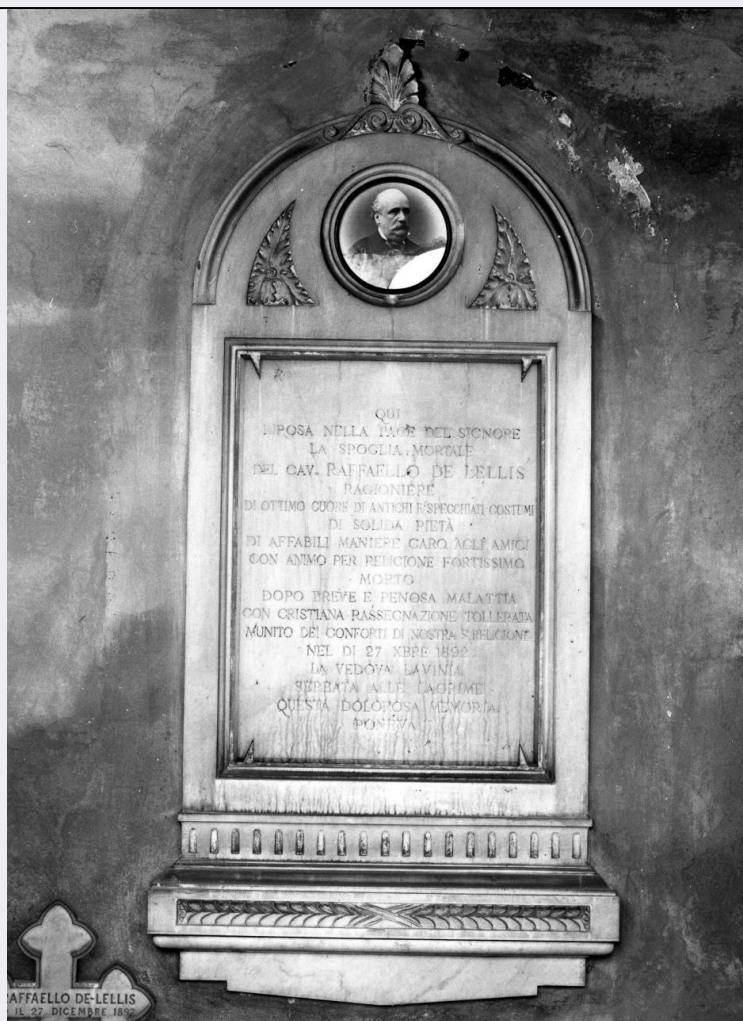 QUI
RIPOSA NELLA PACE DEL SIGNORE
LA SPOGLIA MORTALE
DEL CAV. RAFFAELLO DE LELLIS
RAGIONIERE
DI OTTIMO CUORE DI ANTICHI E SPECCHIATI COSTUMI
DI SOLIDA PIETÀ
DI AFFABILI MANIERE CARO AGLI AMICI
CON ANIMO PER RELIGIONE FORTISSIMO
MORTO
DOPO BREVE E PENOSA MALATTIA
CON CRISTIANA RASSEGNAZIONE TOLLERATA
MUNITO DEI CONFORTI DI NOSTRA S. RELIGIONE
NEL DI 27 XBRE 1892
LA VEDOVA LAVINIA
SERBATA ALLE LAGRIME
QUESTA DOLOROSA MEMORIA
PONEVA
RAFFAELLO DE-LELLIS
IL 27 DICEMBRE 1892